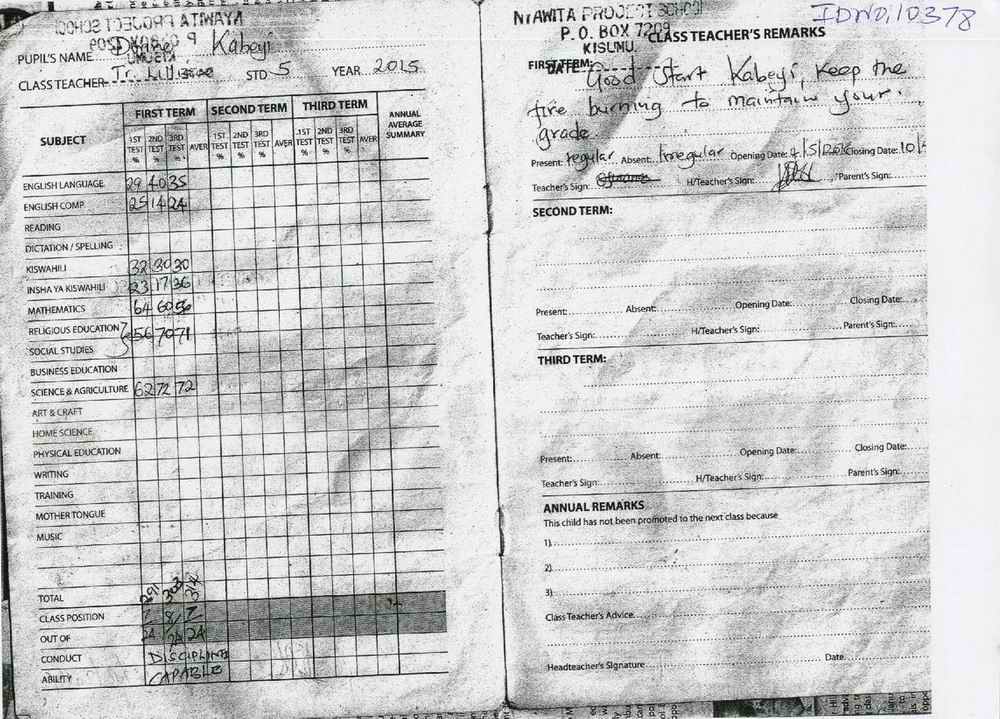 NYAWITA PROJECT SCHOOL
PUPIL'S NAME Kabeyi
CLASS TEACHER Tr. Lillian STD 5 YEAR 2015
SUBJECT FIRST TERM SECOND TERM THIRD TERM ANNUAL AVERAGE SUMMARY
1ST TEST % 2ND TEST % 3RD TEST % AVER 1ST TEST % 2ND TEST % 3RD TEST % AVER 1ST TEST % 2ND TEST % 3RD TEST % AVER
ENGLISH LANGUAGE 29 40 35
ENGLISH COMP. 25 14 24
READING
DICTATION / SPELLING
KISWAHILI 32 30 30
INSHA YA KISWAHILI 23 17 36
MATHEMATICS 64 60 56
RELIGIOUS EDUCATION 56 70 71
SOCIAL STUDIES
BUSINESS EDUCATION
SCIENCE & AGRICULTURE 62 72 72
ART & CRAFT
HOME SCIENCE
PHYSICAL EDUCATION
WRITING
TRAINING
MOTHER TONGUE
MUSIC
TOTAL 291 303
CLASS POSITION 7 8 7
OUT OF 24 24 24
CONDUCT DISCIPLINED
ABILITY CAPABLE
NYAWITA PROJECT SCHOOL
P.O. BOX 7209
KISUMU.
DATE
ID NO, 10378
CLASS TEACHER'S REMARKS
FIRST TERM: Good start Kabeyi, keep the
fire burning to maintain your
grade.
Present: regular Absent: Irregular Opening Date: Closing Date: 10/
Teacher's Sign: H/Teacher's Sign: Parent's Sign:
SECOND TERM:
Present: Absent: Opening Date: Closing Date:
Teacher's Sign: H/Teacher's Sign: Parent's Sign:
THIRD TERM:
Present: Absent: Opening Date: Closing Date:
Teacher's Sign: H/Teacher's Sign: Parent's Sign:
ANNUAL REMARKS
This child has not been promoted to the next class because
1)
2)
3)
Class Teacher's Advice
Headteacher's Signature Date